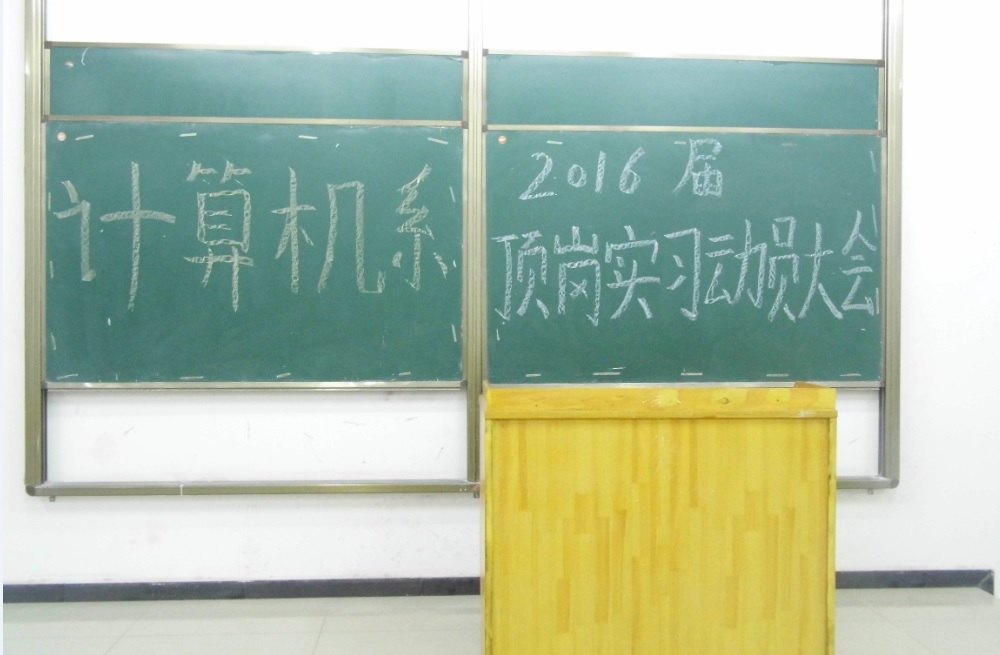 计算机系
2016届
顶岗实习动员大会